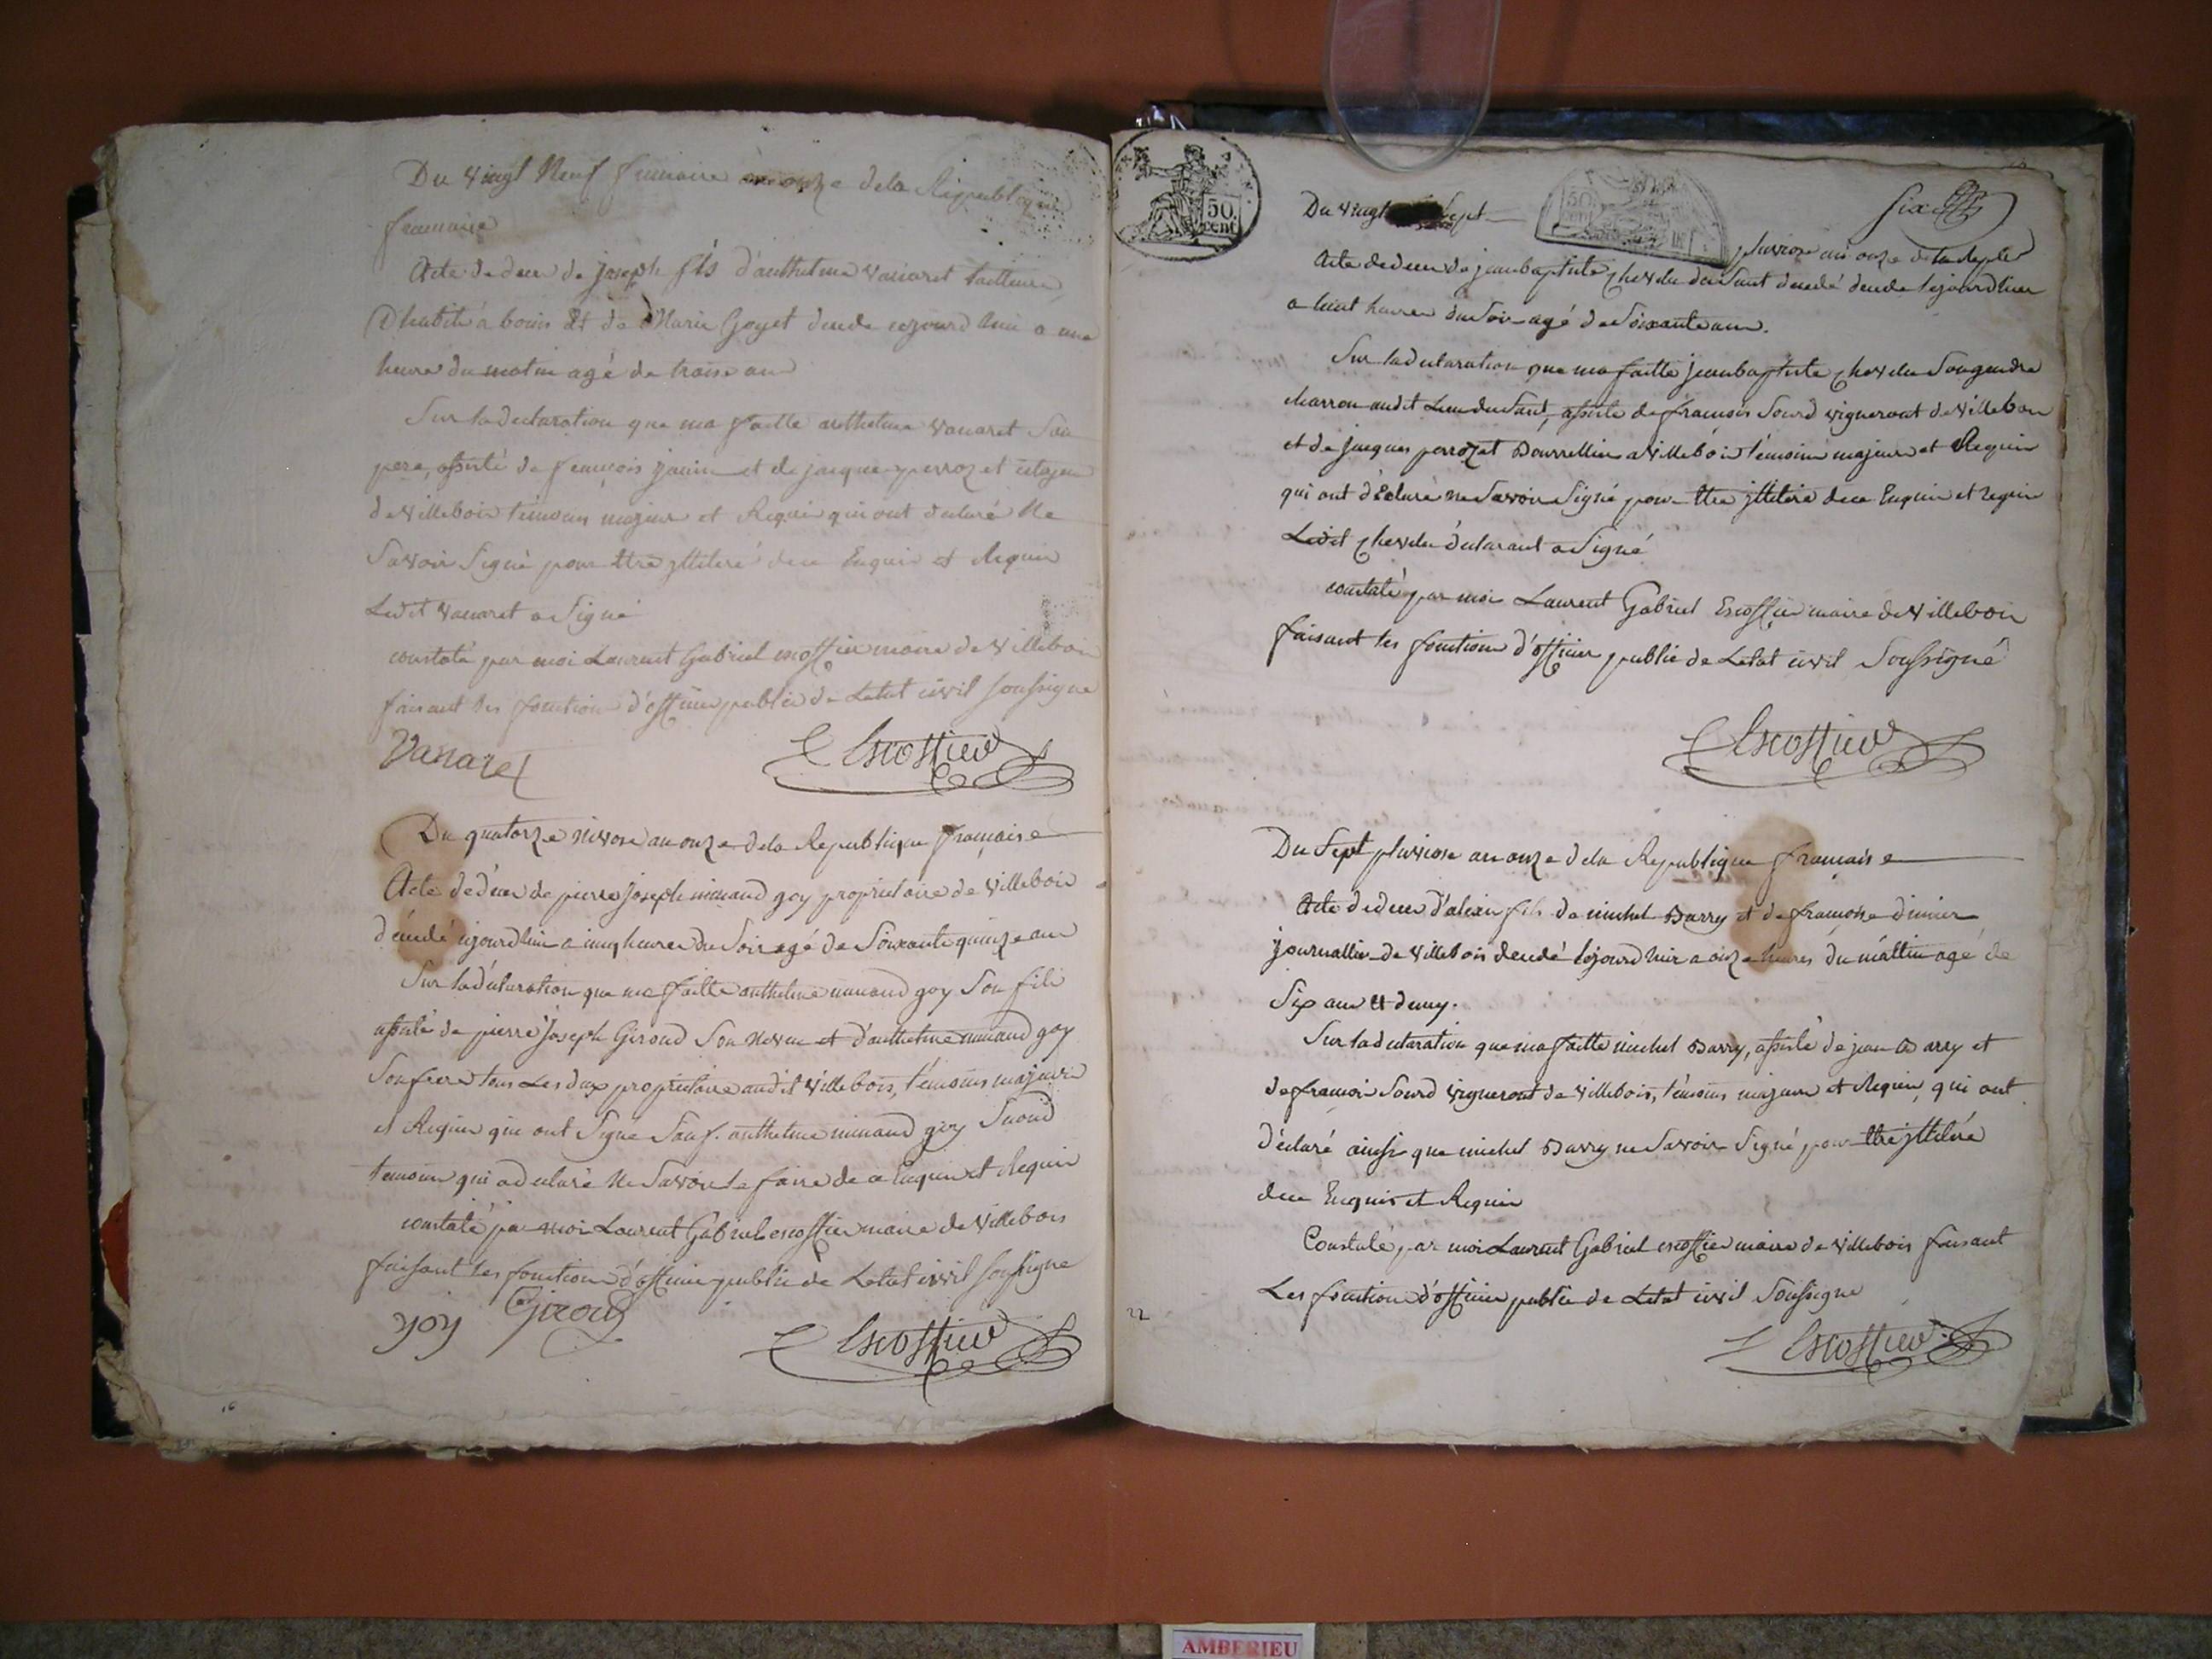 Du vingt Neuf frimaire an onze dela Republique
francaise
Acte de deces de joseph fils d'anthelme vanaret tailleur
D'habits a bouis Et de Marie Goyet decede cejourd'hui a une
heure du matin agé de traise ans
Sur la declaration que ma faitte anthelme vanaret Son
pere, assisté de francois janin et de jacque perrozet citoyens
de villebois temoins majeur et Requis qui ont declaré Ne
Savoir Signé pour ttre jlliteré de ce Enquis et Requis
Ledit vanaret a Signé
constaté par moi Laurent Gabriel escoffier maire de Villebois
faisant les fonctions d'officier public de Letat civil soussigne
Vanaret
Escoffier
Du quatorze nivose an onze dela Republique française
Acte de déces de pierre joseph minaud goy proprietaire de Villebois
décedé cejourdhui a cinq heures du Soir agé de Soixante quinze ans
Sur la déclaration que ma faitte anthelme minaud goy Son fils
assisté de pierre joseph Giroud Son Neveu et d'anthelme minaud goy
Son frere tous Les deux proprietaire audit Villebois, témoins majeurs
et Requis qui ont Signé Sauf anthelme minaud goy Second
temoins qui a declaré Ne Savoir Le faire de ce Enquis et Requis
constaté par moi Laurent Gabriel escoffier maire de Villebois
faisant les fonctions d'officier public de Letat civil soussigne
goy Giroud
Escoffier
16
50 cent
50 cent
six
Du vingt Sept
pluviose an onze de la Repler
Acte de deces de jean baptiste chevelu du Saut decedé decede cejourdhui
a huit heures du Soir agé de Soixante ans.
Sur la declaration que ma faitte jean baptiste chevelu Son gendre
charron audit Lieu du Saut, assisté de francois Sourd vigneront de Villebois
et de jacques perrozet Bourrellier a Villebois témoins majeurs et Requis
qui ont déclaré ne Savoir Signé pour ttre jlliteré de ce Enquis et requis
Ledit chevelu déclarant a Signé
constaté par moi Laurent Gabriel Escoffier maire de Villebois
faisant les fonctions d'officier public de Letat civil Soussigné
Escoffier
Du Sept pluviose an onze dela Republique francaise
Acte de deces d'alexis fils de michel Barry et de francoise dimier
journallier de Villebois decedé cejourdhui a onze heures du mattin agé de
Six ans et demy.
Sur la declaration que ma faitte michel Barry, assisté de jean Barry et
de francois Sourd vigneront de Villebois, témoins majeurs et Requis qui ont
déclaré ainsi que michel Barry ne Savoir Signé pour ttre jlliteré
de ce Enquis et Requis
Constaté par moi Laurent Gabriel escoffier maire de Villebois faisant
Les fonctions d'officier public de Letat civil Soussigne
Escoffier
22
AMBERIEU